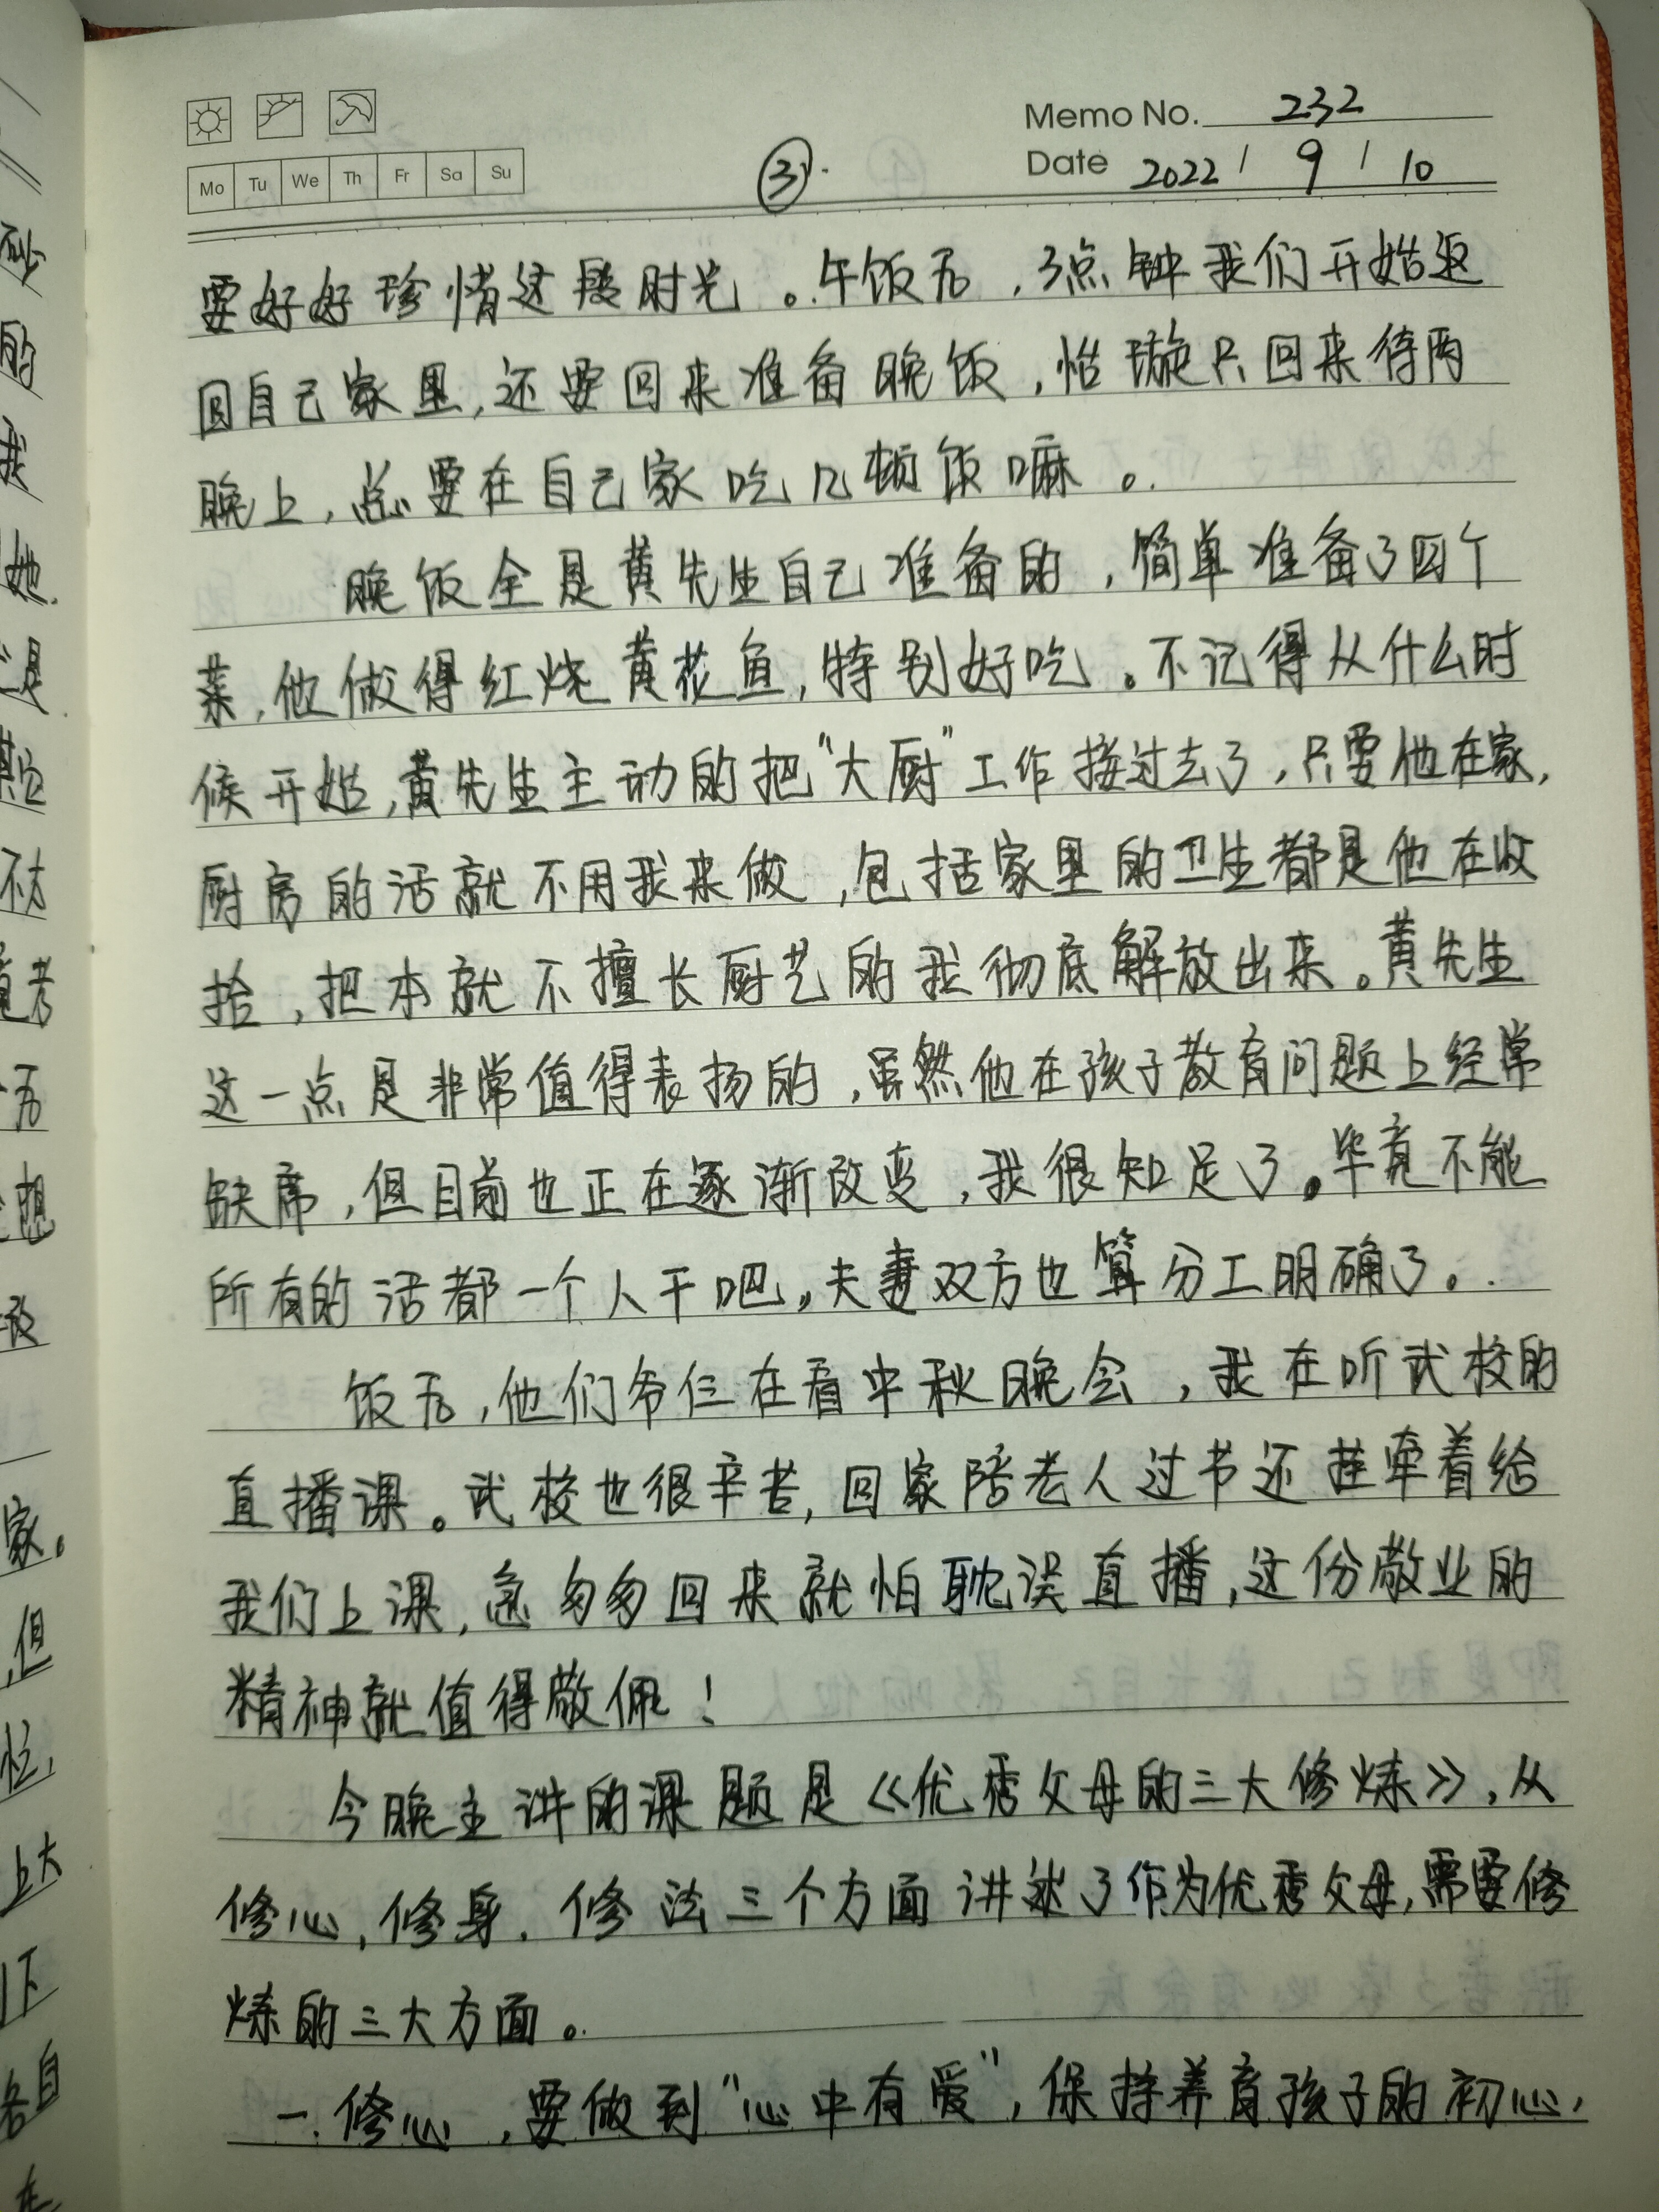 Memo No. 232
Mo Tu We Th Fr Sa Su
③
Date 2022 / 9 / 10
要好好珍惜这段时光。午饭后，3点钟我们开始返
回自己家里，还要回来准备晚饭，恬璇只回来待两
晚上，总要在自己家吃几顿饭嘛。
晚饭全是黄先生自己准备的，简单准备了四个
菜，他做得红烧黄花鱼，特别好吃。不记得从什么时
候开始，黄先生主动的把“大厨”工作接过去了，只要他在家，
厨房的活就不用我来做，包括家里的卫生都是他在收
拾，把本就不擅长厨艺的我彻底解放出来。黄先生
这一点是非常值得表扬的，虽然他在孩子教育问题上经常
缺席，但目前也正在逐渐改变，我很知足了。毕竟不能
所有的活都一个人干吧，夫妻双方也算分工明确了。
饭后，他们爷仨在看中秋晚会，我在听武校的
直播课。武校也很辛苦，回家陪老人过节还挂牵着给
我们上课，急匆匆回来就怕耽误直播，这份敬业的
精神就值得敬佩！
今晚主讲的课题是《优秀父母的三大修炼》，从
修心，修身，修法三个方面讲述了作为优秀父母，需要修
炼的三大方面。
一.修心，要做到“心中有爱”，保持养育孩子的初心，